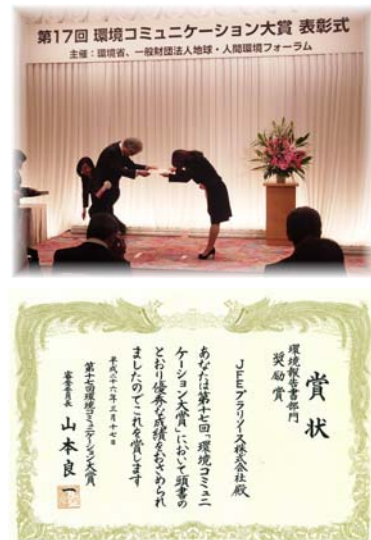 第17回 環境コミュニケーション大賞 表彰式
主催：環境省、一般財団法人地球・人間環境フォーラム
賞状
環境報告書部門
奨励賞
JFEプラリソース株式会社殿
あなたは第十七回「環境コミュニ
ケーション大賞」において頭書の
とおり優秀な成績をおさめられ
ましたのでこれを賞します
平成二十六年三月十七日
第十七回環境コミュニケーション大賞
審査委員長 山本良一